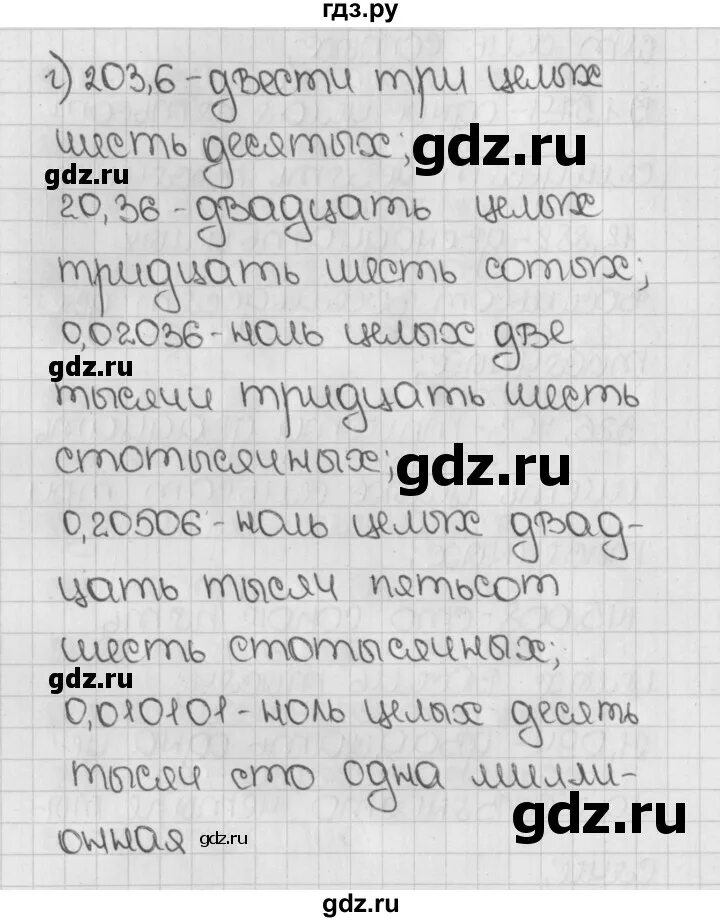 гдз.ру
г) 203,6 - двести три целых
шесть десятых;
gdz.ru
gdz.ru
20,36 - двадцать целых
тридцать шесть сотых;
0,02036 - ноль целых две
gdz.ru
тысячи тридцать шесть
стотысячных;
gdz.ru
0,20506 - ноль целых двад-
цать тысяч пятьсот
шесть стотысячных;
gdz.ru
0,010101 - ноль целых десять
тысяч сто одна милли-
онная
gdz.ru
gdz.ru
gdz.ru